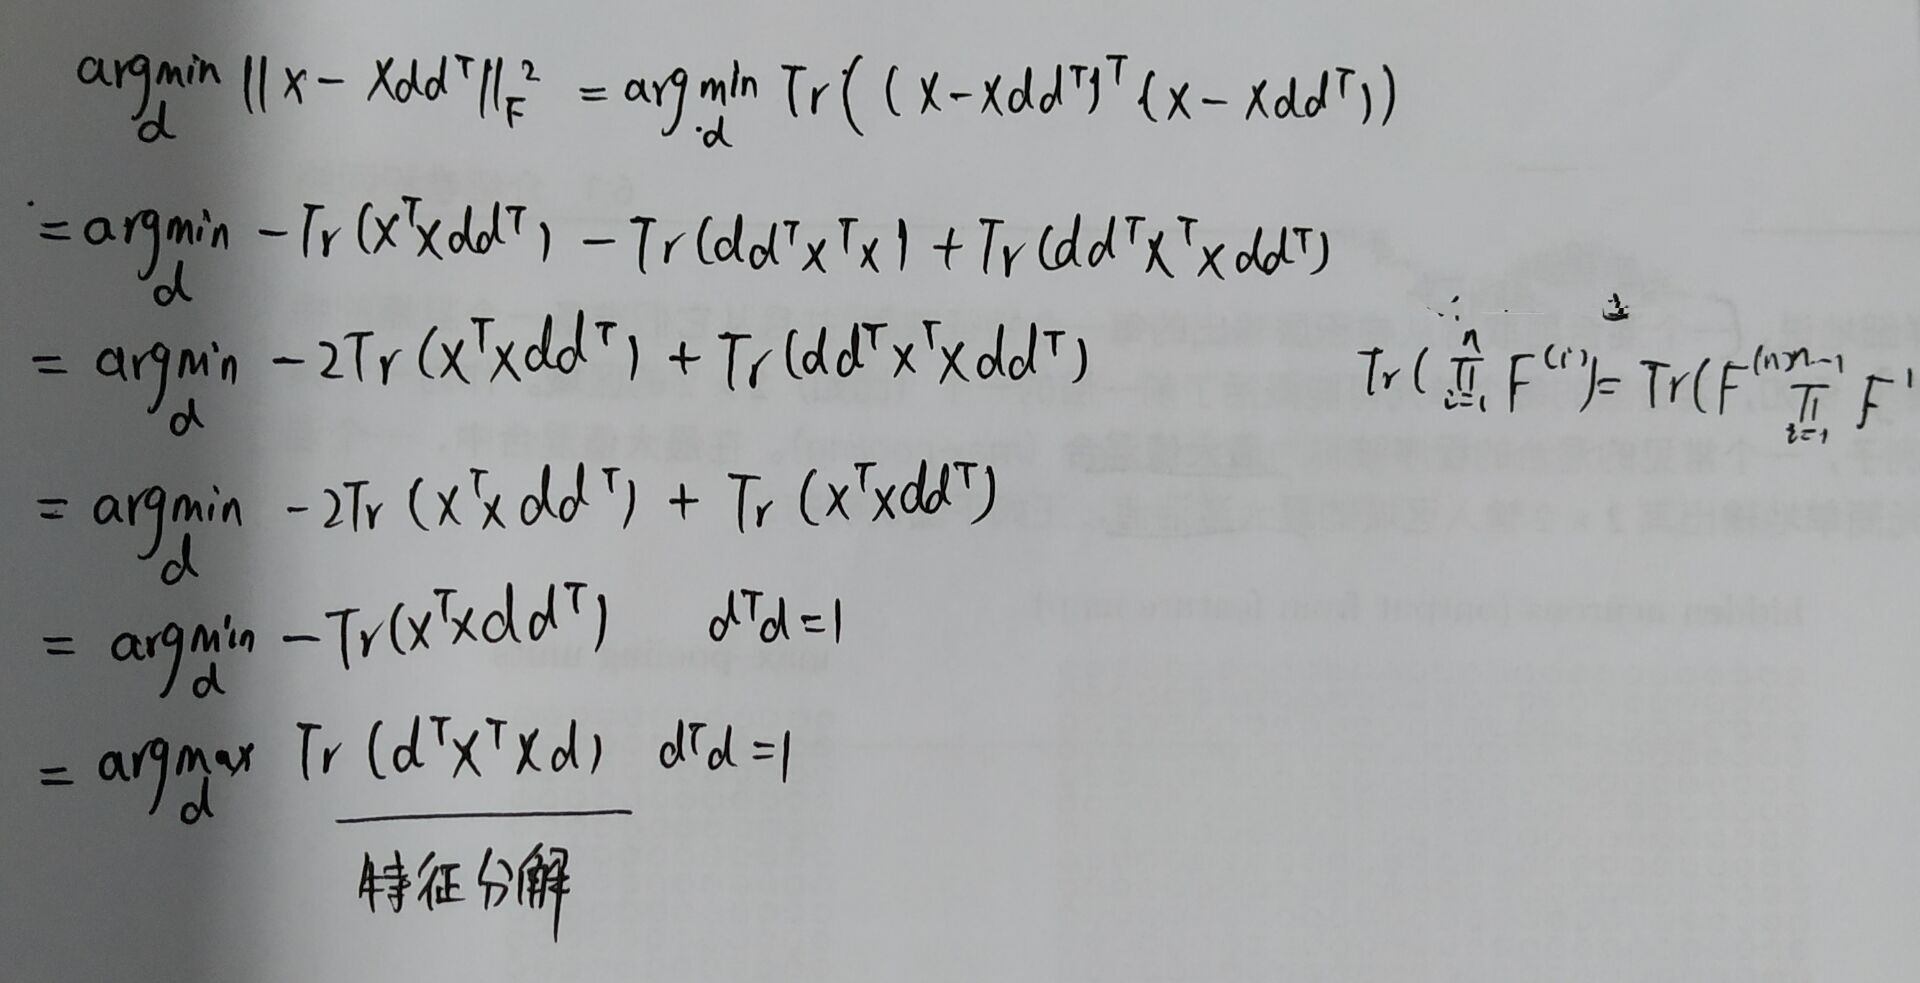 argmin_d ||X - Xdd^T||_F^2 = argmin_d Tr((X-Xdd^T)^T(X-Xdd^T))
= argmin_d -Tr(X^TXdd^T) - Tr(dd^TX^TX) + Tr(dd^TX^TXdd^T)
= argmin_d -2Tr(X^TXdd^T) + Tr(dd^TX^TXdd^T)
Tr(∏_{i=1}^n F^(i)) = Tr(F^(n) ∏_{i=1}^{n-1} F
= argmin_d -2Tr(X^TXdd^T) + Tr(X^TXdd^T)
= argmin_d -Tr(X^TXdd^T) d^Td=1
= argmax_d Tr(d^TX^TXd) d^Td=1
特征分解